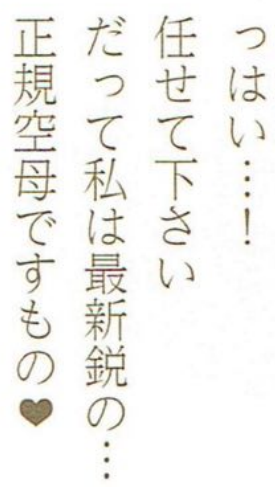 っはい…！
任せて下さい
だって私は最新鋭の…
正規空母ですもの♥